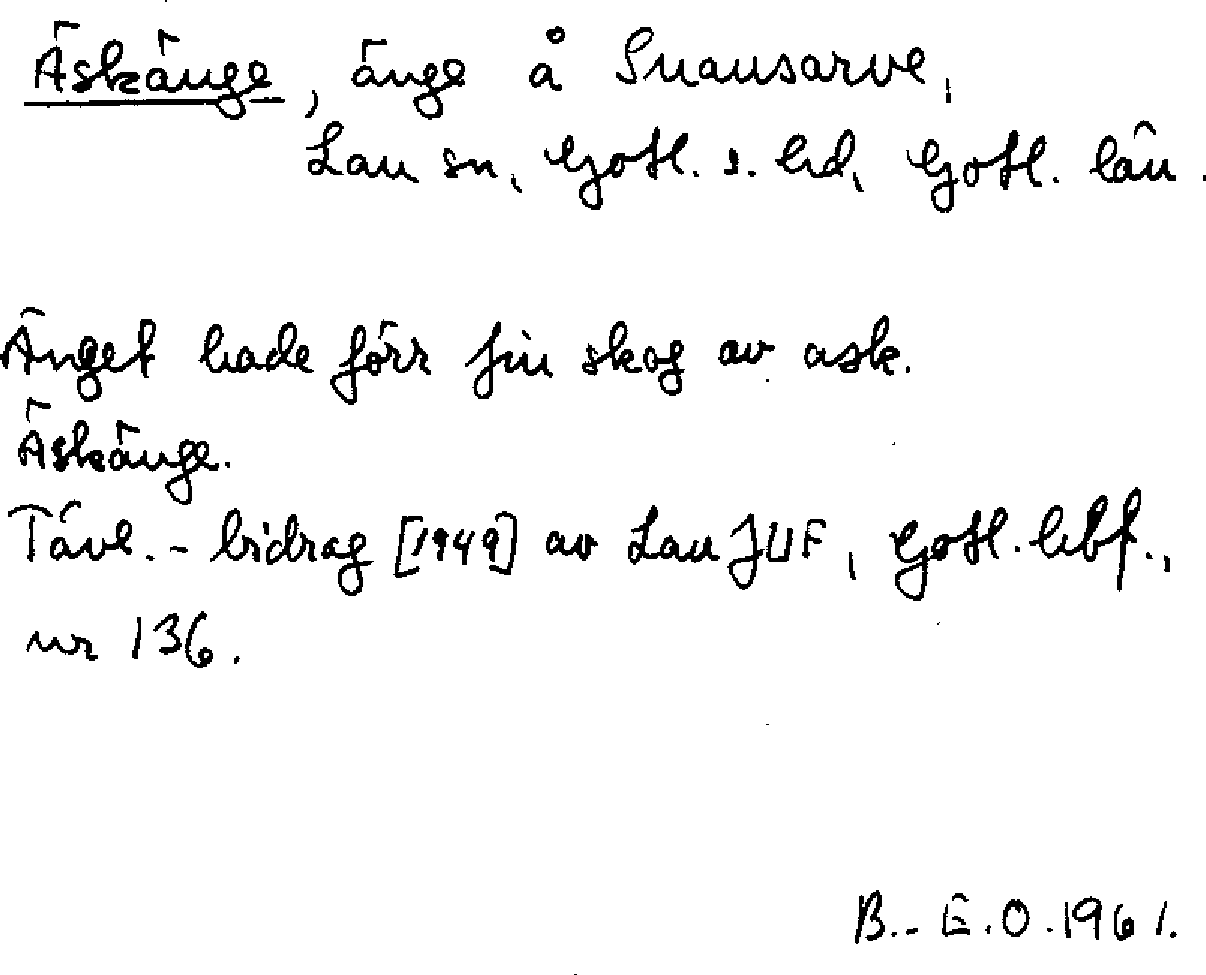 Äskänge, änge å Snausarve,
Lau sn, Gotl. s. hd, Gotl. län.
Änget hade förr fin skog av ask.
Äskänge.
Tävl.-bidrag [1949] av Lau JUF, Gotl. hbf.,
nr 136.
B.-E.O.1961.